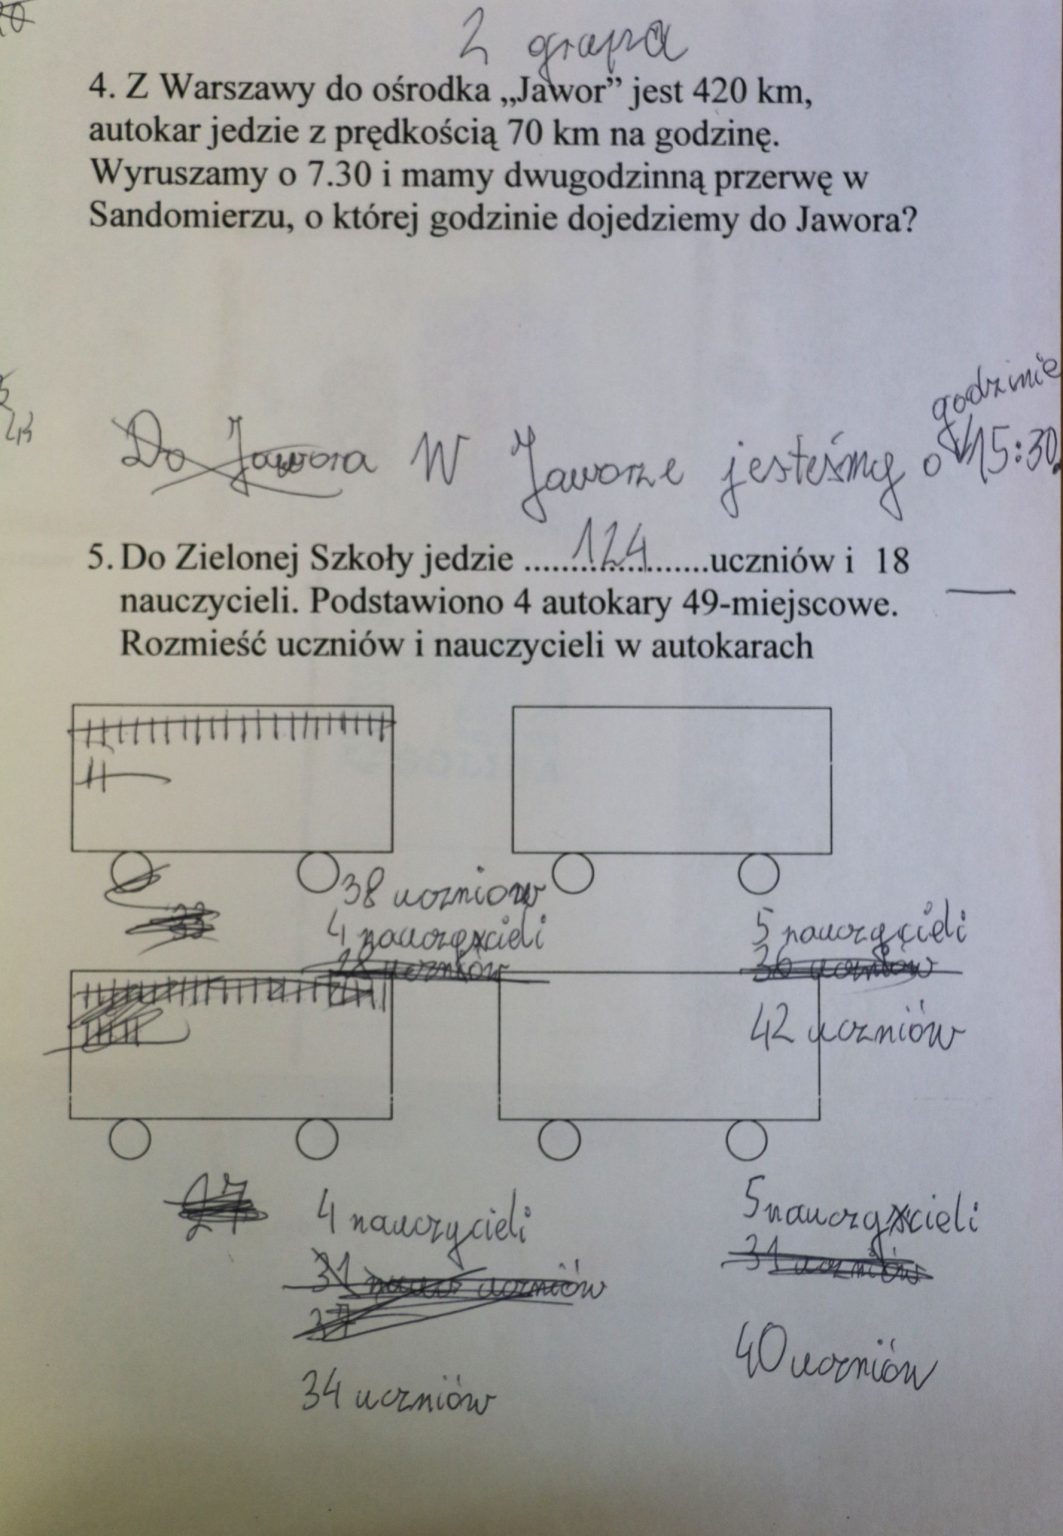 2 grupa
4. Z Warszawy do ośrodka „Jawor” jest 420 km,
autokar jedzie z prędkością 70 km na godzinę.
Wyruszamy o 7.30 i mamy dwugodzinną przerwę w
Sandomierzu, o której godzinie dojedziemy do Jawora?
godzinie
Do Jawora W Jaworze jesteśmy o 15:30.
5. Do Zielonej Szkoły jedzie ......124.......uczniów i 18
nauczycieli. Podstawiono 4 autokary 49-miejscowe.
Rozmieść uczniów i nauczycieli w autokarach
38 uczniów
33 4 nauczycieli 5 nauczycieli
28 uczniów 36 uczniów
42 uczniów
27 4 nauczycieli 5 nauczycieli
31 uczniów 31 uczniów
37
34 uczniów 40 uczniów